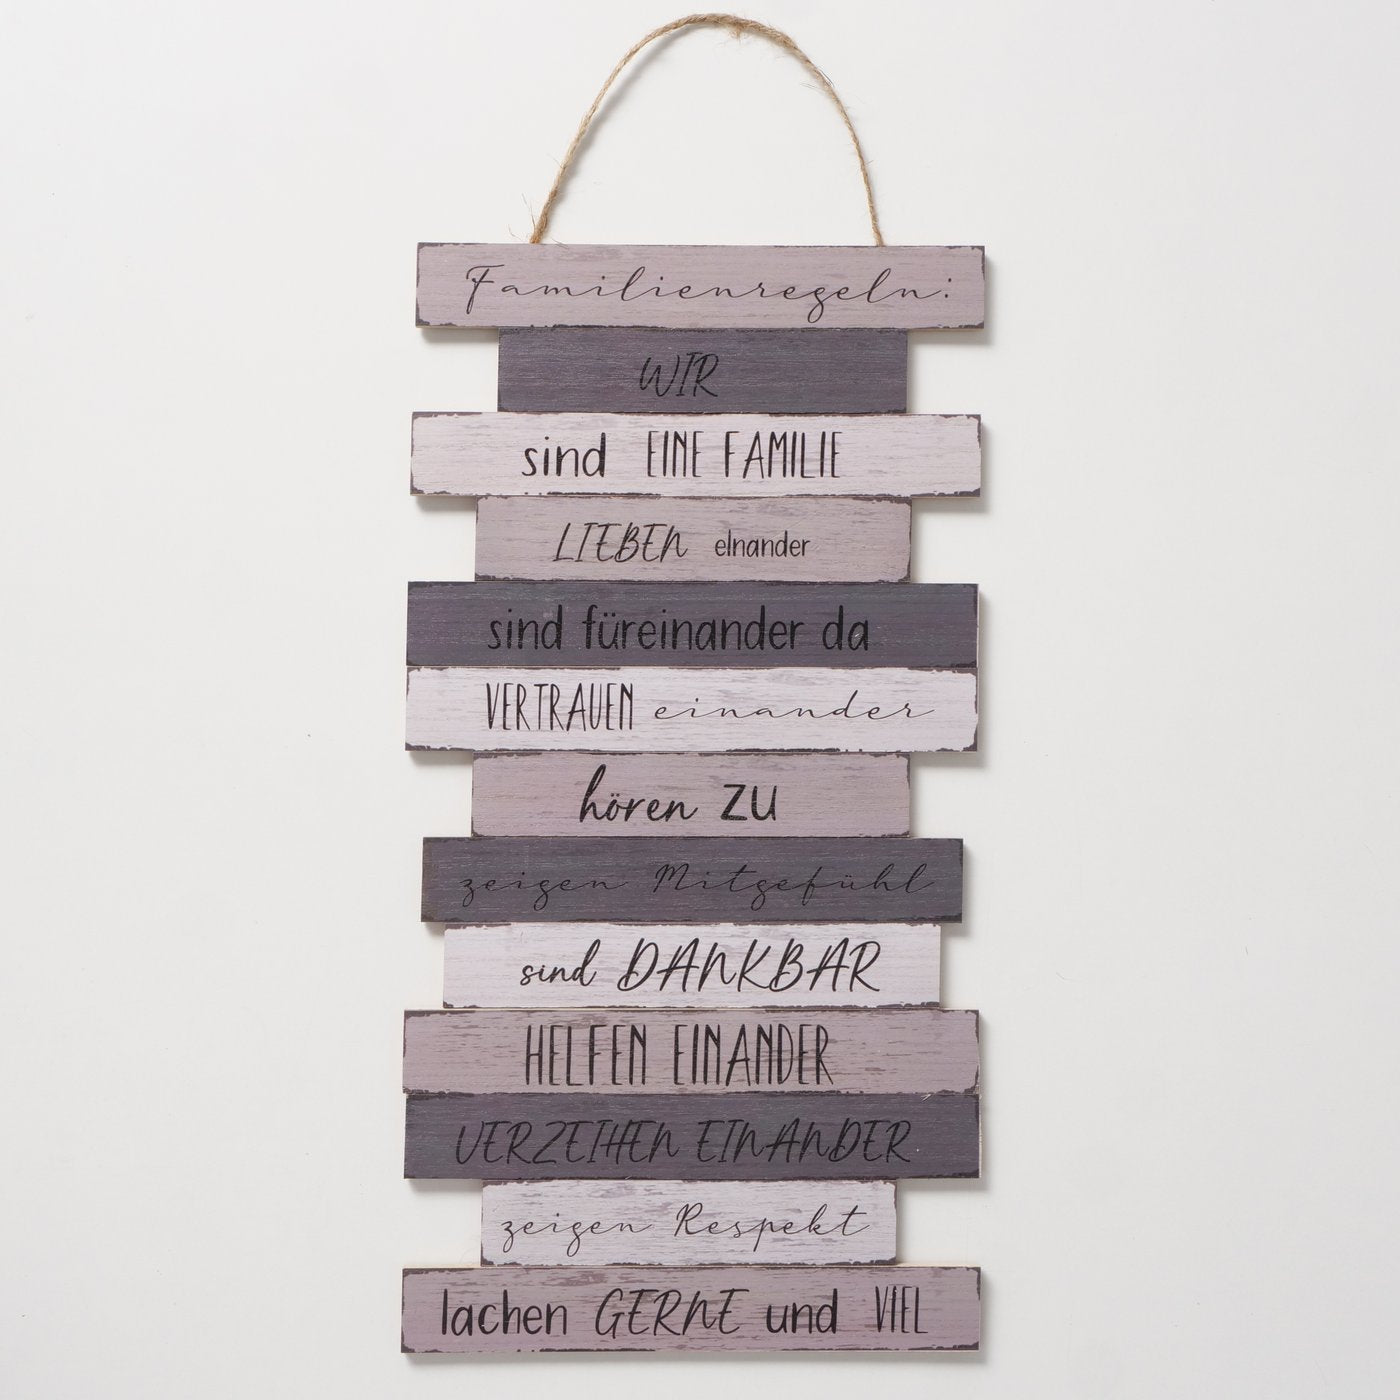 Familienregeln:
WIR
sind EINE FAMILIE
LIEBEN eInander
sind füreinander da
VERTRAUEN einander
hören ZU
zeigen Mitgefühl
sind DANKBAR
HELFEN EINANDER
VERZEIHEN EINANDER
zeigen Respekt
lachen GERNE und VIEL